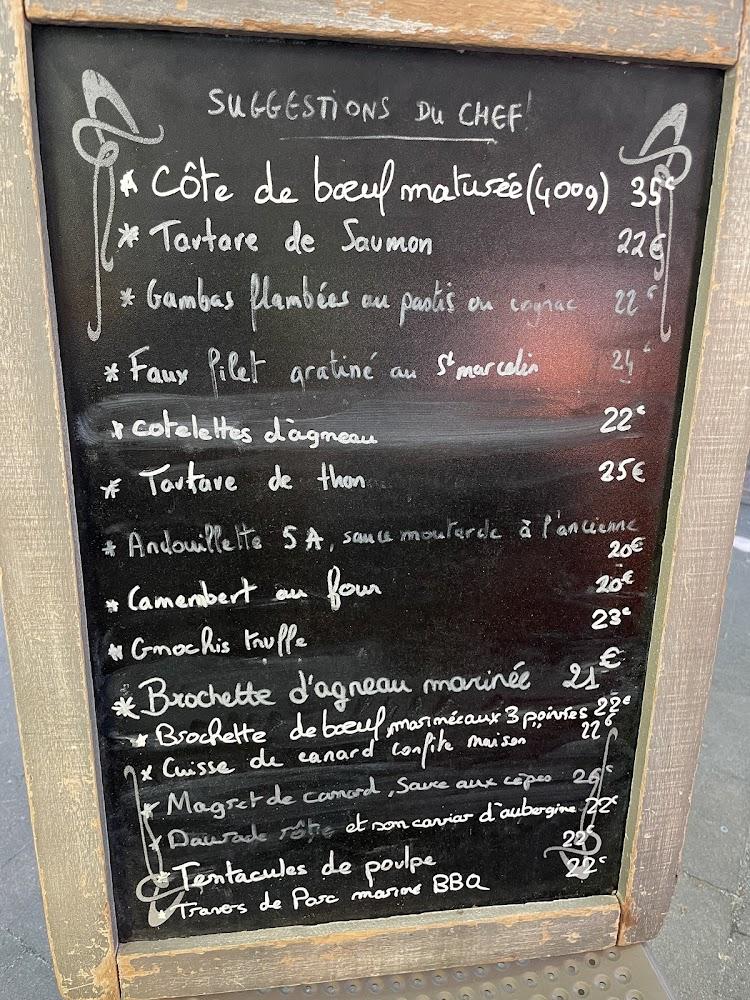 SUGGESTIONS DU CHEF!
* Côte de bœuf maturée (400g) 35€
* Tartare de Saumon 22€
* Gambas flambées au pastis ou cognac 22€
* Faux filet gratiné au St marcelin 24€
* cotelettes d'agneau 22€
* Tartare de thon 25€
* Andouillette 5A, sauce moutarde à l'ancienne 20€
* Camembert au four 20€
* Gnochis truffe 23€
* Brochette d'agneau marinée 21€
* Brochette de bœuf marinée aux 3 poivres 22€
* Cuisse de canard confite maison 22€
* Magret de canard, Sauce aux cèpes 26€
* Daurade rôtie et son caviar d'aubergine 22€
* Tentacules de poulpe 22€
* Travers de Porc mariné BBQ 22€